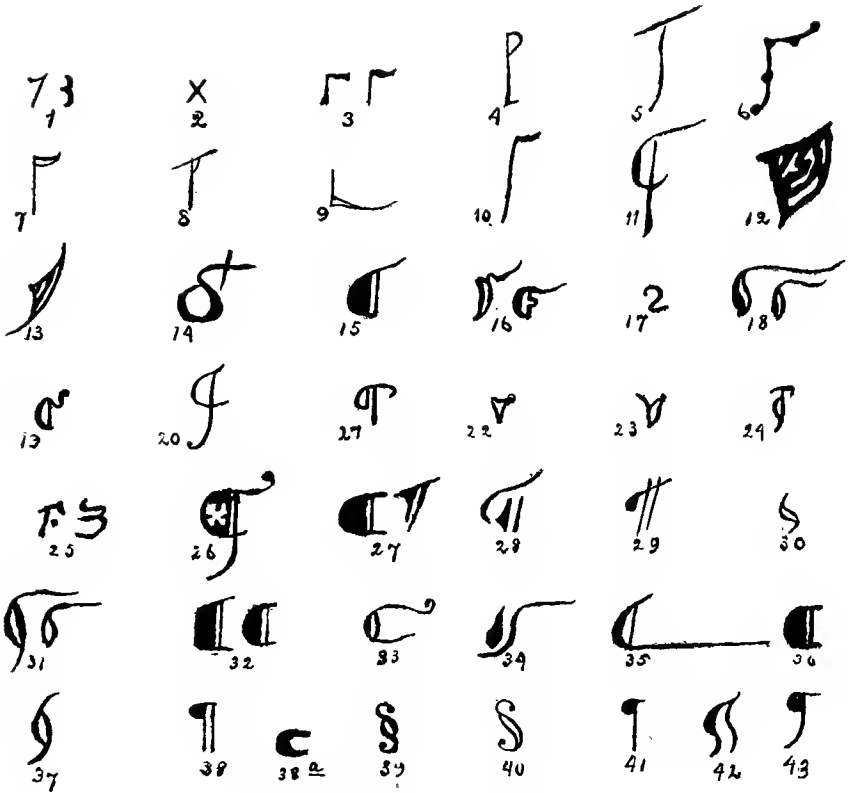 1 2 3 4 5 6
7 8 9 10 11 12
13 14 15 16 17 18
19 20 27 22 23 24
25 26 27 28 29 30
31 32 33 34 35 36
¶ § §
37 38 38a 39 40 41 42 43